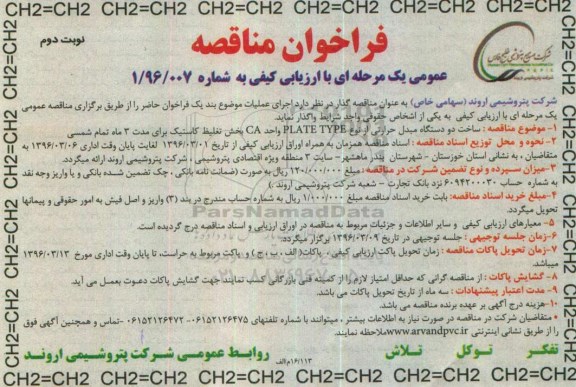 CH2=CH2 CH2=CH2 CH2=CH2 CH2=CH2 CH2=CH2 CH2=CH2 CH2=CH2
نوبت دوم
فراخوان مناقصه
عمومی یک مرحله ای با ارزیابی کیفی به شماره ۱/۹۶/۰۰۷
شرکت پتروشیمی اروند (سهامی خاص) به عنوان مناقصه گذار در نظر دارد اجرای عملیات موضوع بند یک فراخوان حاضر را از طریق برگزاری مناقصه عمومی
یک مرحله ای با ارزیابی کیفی به یکی از اشخاص حقوقی واجد شرایط واگذار نماید.
۱- موضوع مناقصه : ساخت دو دستگاه مبدل حرارتی از نوع PLATE TYPE واحد CA بخش تغلیظ کاستیک برای مدت ۳ ماه تمام شمسی
۲- نحوه و محل توزیع اسناد مناقصه : اسناد مناقصه همزمان به همراه اوراق ارزیابی کیفی از تاریخ ۱۳۹۶/۰۳/۰۱ لغایت پایان وقت اداری ۱۳۹۶/۰۳/۰۶ به
متقاضیان ، به نشانی استان خوزستان - شهرستان بندر ماهشهر- سایت ۳ منطقه ویژه اقتصادی پتروشیمی ، شرکت پتروشیمی اروند ارائه میگردد.
۳- میزان سپرده و نوع تضمین شرکت در مناقصه : مبلغ ۱۲۰/۰۰۰/۰۰۰ ریال به صورت (ضمانت نامه بانکی ، چک تضمین شده بانکی و یا واریز وجه نقد
به شماره حساب ۶۰۹۴۲۰۰۰۳۰ نزد بانک تجارت - شعبه شرکت پتروشیمی اروند .)
۴- مبلغ خرید اسناد مناقصه: بابت خرید اسناد مناقصه مبلغ ۱/۰۰۰/۰۰۰ ریال به شماره حساب مندرج در بند (۳) واریز و اصل فیش به امور حقوقی و پیمانها
تحویل میگردد.
۵- معیارهای ارزیابی کیفی و سایر اطلاعات و جزئیات مربوط به مناقصه در اوراق ارزیابی و اسناد مناقصه درج گردیده است.
۶- زمان جلسه توجیهی : جلسه توجیهی در تاریخ ۱۳۹۶/۰۳/۰۹ برگزار میگردد.
۷- زمان تحویل پاکات مناقصه : زمان تحویل پاکت ارزیابی کیفی ، پاکات ( الف ، ب ، ج ) و پاکت مربوط به حراست، تا پایان وقت اداری مورخ ۱۳۹۶/۰۳/۱۳
میباشد.
۸- گشایش پاکات : از مناقصه گرانی که حداقل امتیاز لازم را از کمیته فنی بازرگانی کسب نمایند جهت گشایش پاکات دعوت بعمل می آید.
۹- مدت اعتبار پیشنهادات : سه ماه از تاریخ تحویل پاکات می باشد.
۱۰- هزینه درج آگهی بر عهده برنده مناقصه می باشد.
• متقاضیان شرکت در مناقصه در صورت نیاز به اطلاعات بیشتر ، میتوانند با شماره تلفنهای ۰۶۱۵۲۱۲۶۴۷۵- ۰۶۱۵۲۱۲۶۴۷۲ -تماس و همچنین آگهی فوق
را از طریق نشانی اینترنتی www.arvandpvc.ir ملاحظه نمایند.
تفکر توکل تلاش روابط عمومی شرکت پتروشیمی اروند
۱۶/۱۱۳م الف
CH2=CH2 CH2=CH2 CH2=CH2 CH2=CH2 CH2=CH2 CH2=CH2 CH2=CH2